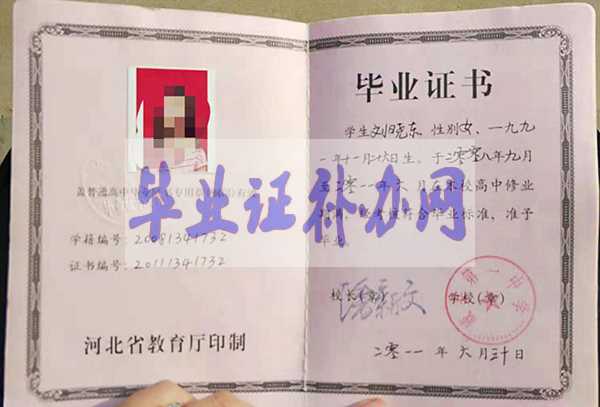 盖普通高中毕业证书专用章(钢印)有效
学籍编号: 20081341732
证书编号: 20111341732
河北省教育厅印制
毕业证书
学生刘旭东、性别女、一九九
一年十一月二十六日生、于二零零八年九月
至二零一一年六月在本校高中修业
期满,经考核符合毕业标准,准予
毕业。
校长(章)
学校(章)
第一中学
二零一一年六月三十日
毕业证补办网